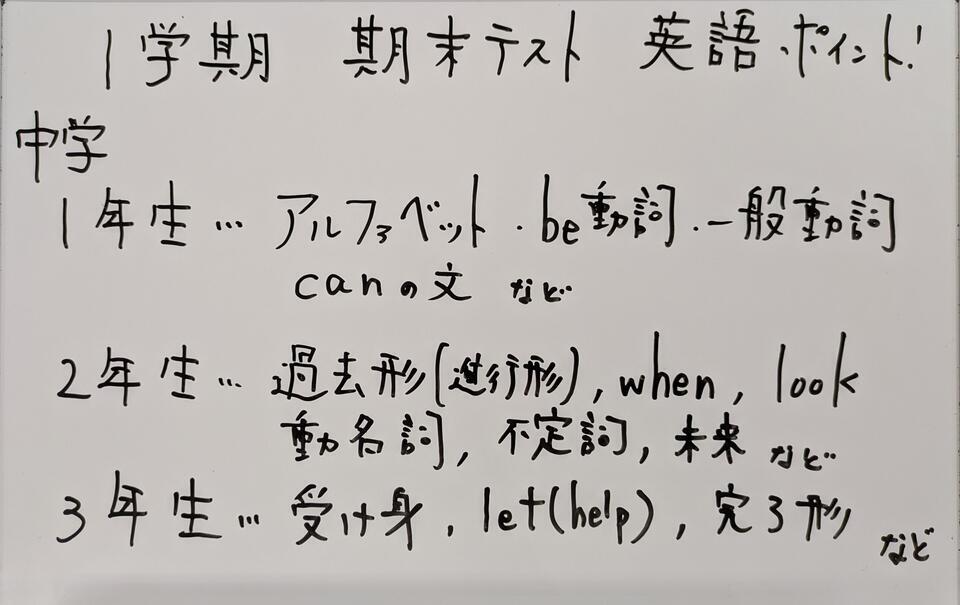 1学期 期末テスト 英語ポイント!
中学
1年生… アルファベット・be動詞・一般動詞
canの文 など
2年生… 過去形(進行形), when, look
動名詞, 不定詞, 未来 など
3年生… 受け身, let(help), 完了形 など